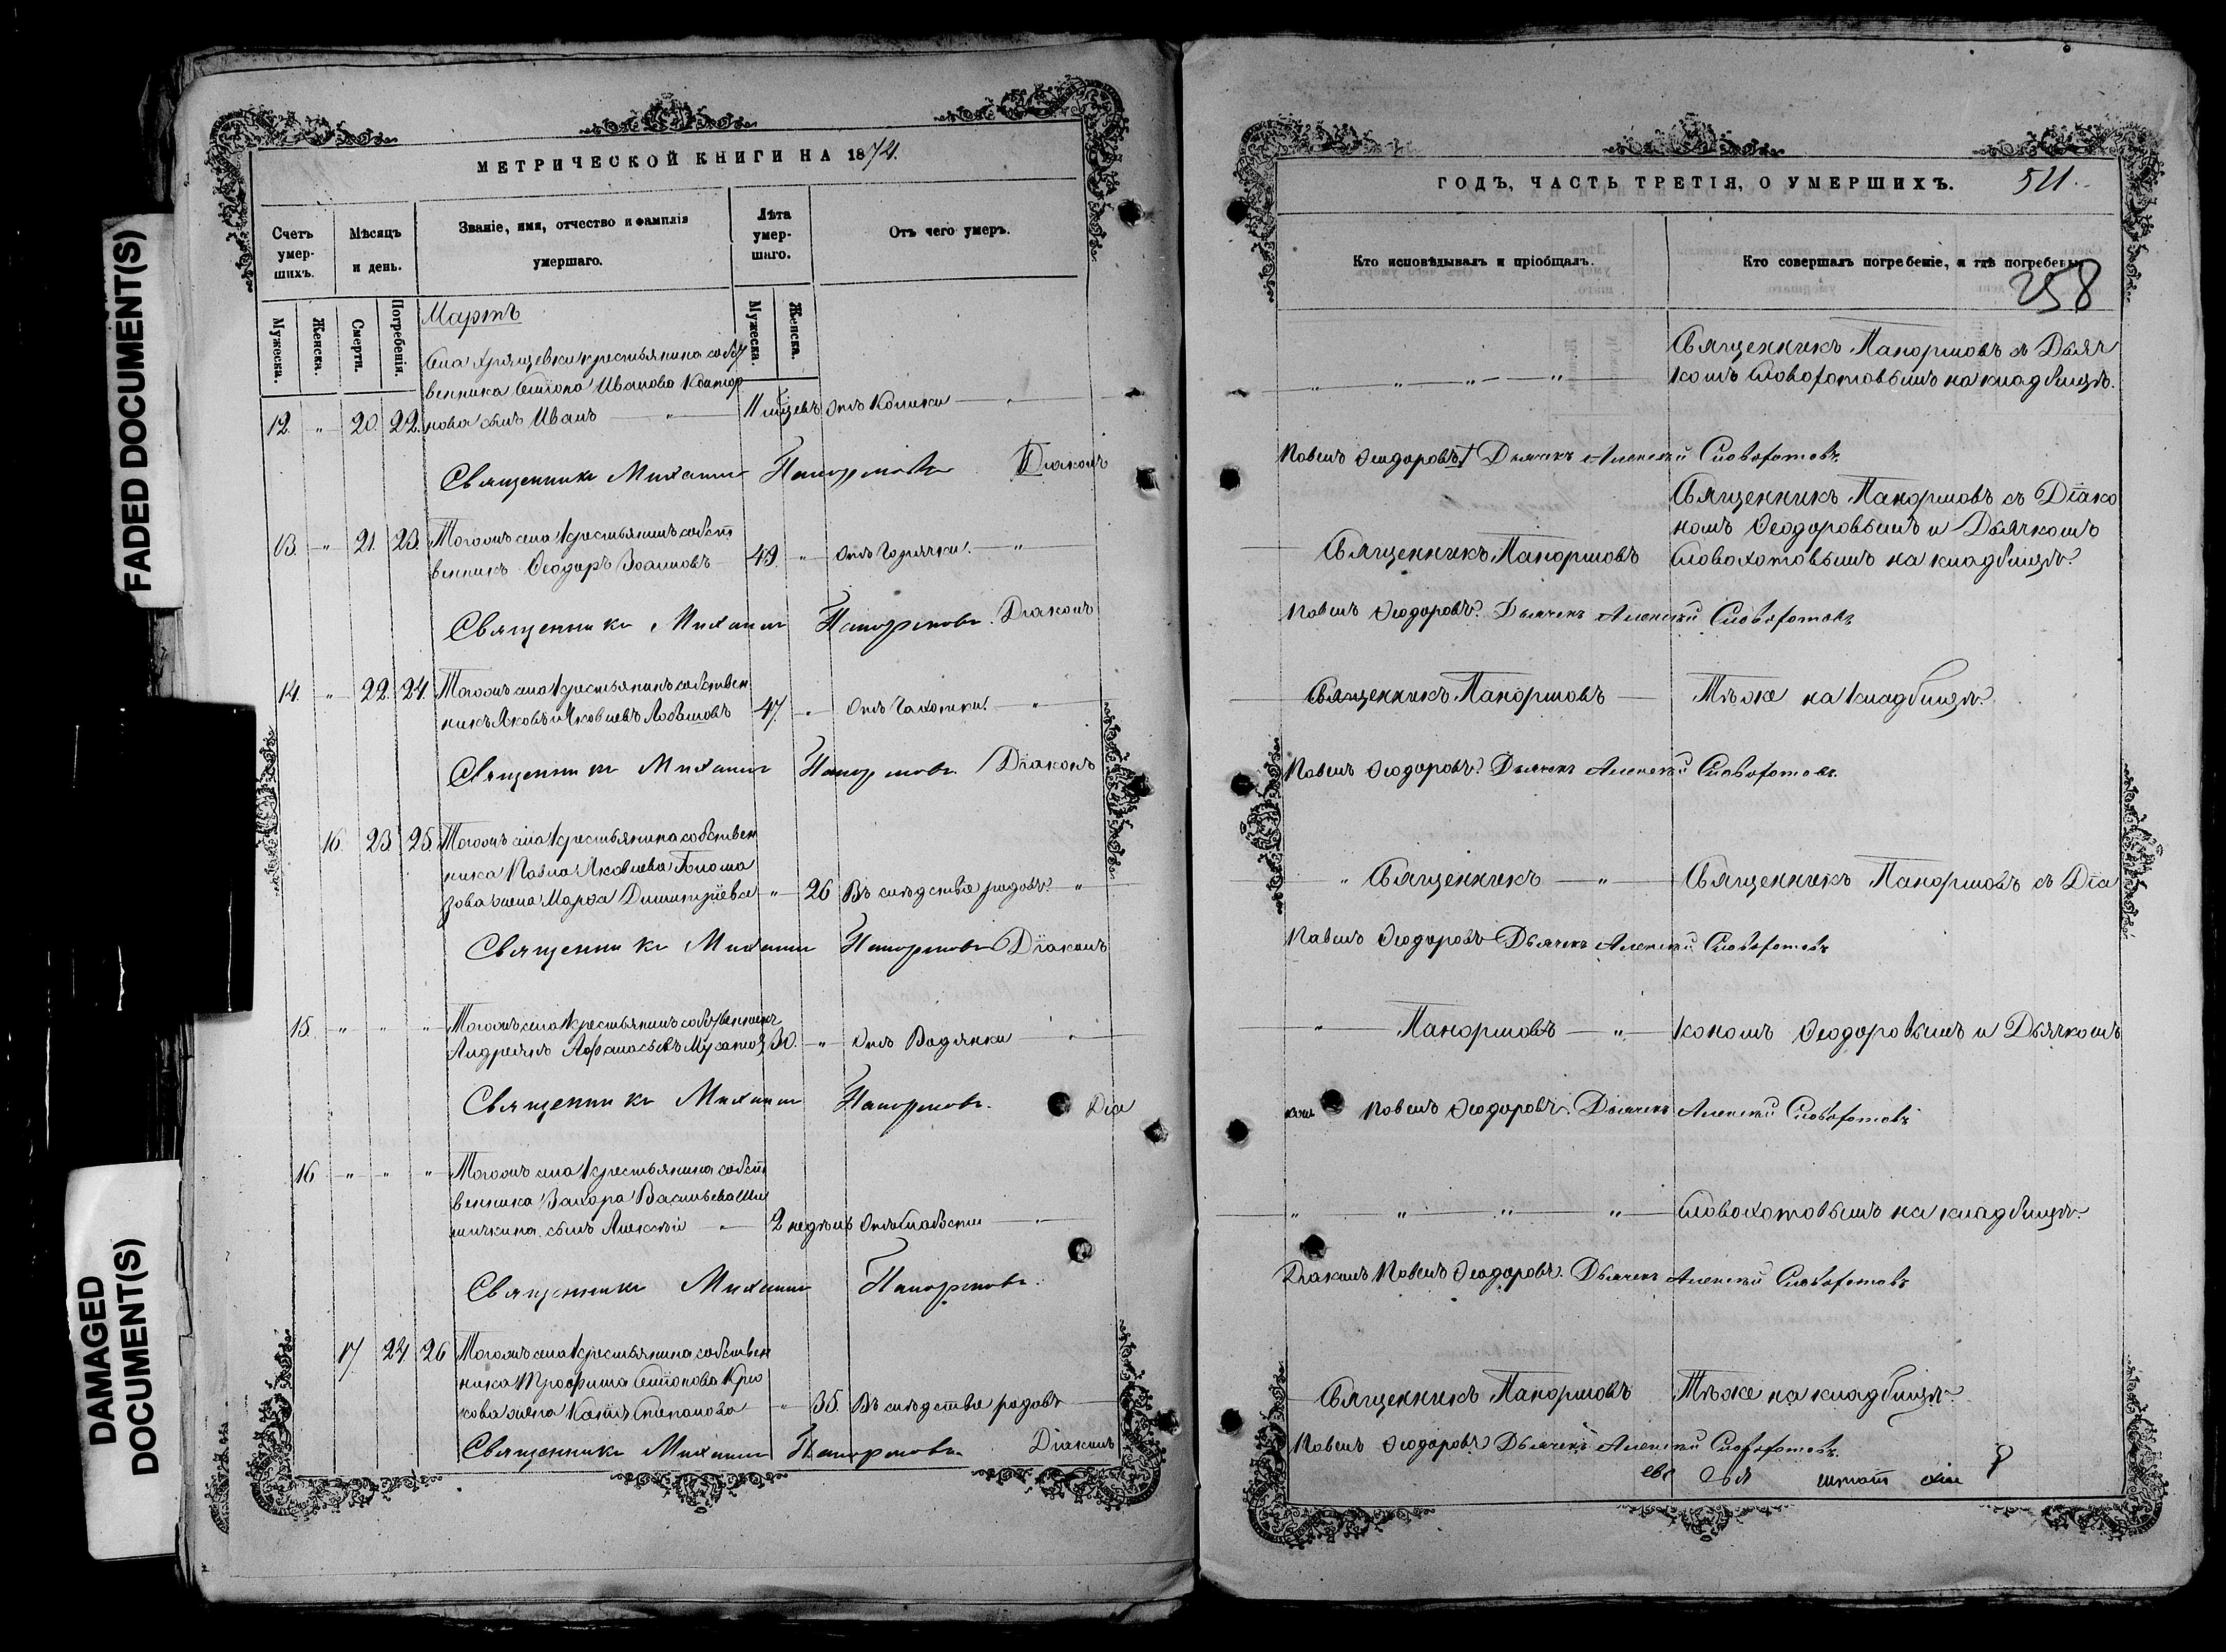 FADED DOCUMENT(S)
DAMAGED
DOCUMENT(S)
МЕТРИЧЕСКОЙ КНИГИ НА 1874.
Счетъ умер-шихъ.
Мѣсяцъ и день.
Званіе, имя, отчество и фамилія умершаго.
Лѣта умер-шаго.
Отъ чего умеръ.
Мужеска.
Женска.
Смерти.
Погребенія.
Мужеска.
Женска.
Мартъ
Села Хрящевки крестьянина собст
венника Семіона Иванова
12. " 20. 22. нова сынъ Иванъ " 11 мѣсяцевъ Отъ Колики "
Священникъ Михаилъ Панормовъ Діаконъ
13. " 21. 23. Тогожъ села крестьянинъ собст
венникъ Ѳеодоръ 49. " Отъ Горячки. "
Священникъ Михаилъ Панормовъ. Діаконъ
14. " 22. 24. Тогожъ села крестьянинъ собствен
никъ Яковъ Яковлевъ Лобановъ 47. " Отъ Чахотки. "
Священникъ Михаилъ Панормовъ. Діаконъ
16. 23 25. Тогожъ села крестьянина собствен
ника Павла Яковлева
зова жена Марѳа Димитріева " 26 Въ слѣдствіе родовъ "
Священникъ Михаилъ Панормовъ Діаконъ
15. " " " Тогожъ села крестьянинъ собственникъ
Андреянъ Афанасьевъ 30. " Отъ Водянки "
Священникъ Михаилъ Панормовъ. Діа
16 " " " Тогожъ села крестьянина собст
венника Захара Васильева
сынъ Алексѣй " 2 недѣль Отъ слабости "
Священникъ Михаилъ Панормовъ.
17 24 26 Тогожъ села крестьянина собствен
ника Трофима Семіонова Крю
кова жена Степанова " 35. Въ слѣдствіе родовъ
Священникъ Михаилъ Панормовъ Діаконъ
ГОДЪ, ЧАСТЬ ТРЕТІЯ, О УМЕРШИХЪ.
258
Кто исповѣдывалъ и пріобщалъ.
Кто совершалъ погребеніе, и гдѣ погребены.
Священникъ Панормовъ съ Дьяч
" " " " комъ Словохотовымъ на кладбищѣ.
Павелъ Ѳеодоровъ Дьячекъ Алексѣй Словохотовъ.
Священникъ Панормовъ съ Діако
номъ Ѳеодоровымъ и Дьячкомъ
Священникъ Панормовъ Словохотовымъ на кладбищѣ.
Павелъ Ѳеодоровъ. Дьячекъ Алексѣй Словохотовъ
Священникъ Панормовъ Тѣже на кладбищѣ.
Павелъ Ѳеодоровъ. Дьячекъ Алексѣй Словохотовъ.
" Священникъ " Священникъ Панормовъ съ Діа
Павелъ Ѳеодоровъ Дьячекъ Алексѣй Словохотовъ
" Панормовъ " кономъ Ѳеодоровымъ и Дьячкомъ
конъ Павелъ Ѳеодоровъ. Дьячекъ Алексѣй Словохотовъ
" " " " Словохотовымъ на кладбищѣ.
Діаконъ Павелъ Ѳеодоровъ. Дьячекъ Алексѣй Словохотовъ
Священникъ Панормовъ Тѣже на кладбищѣ.
Павелъ Ѳеодоровъ Дьячекъ Алексѣй Словохотовъ.